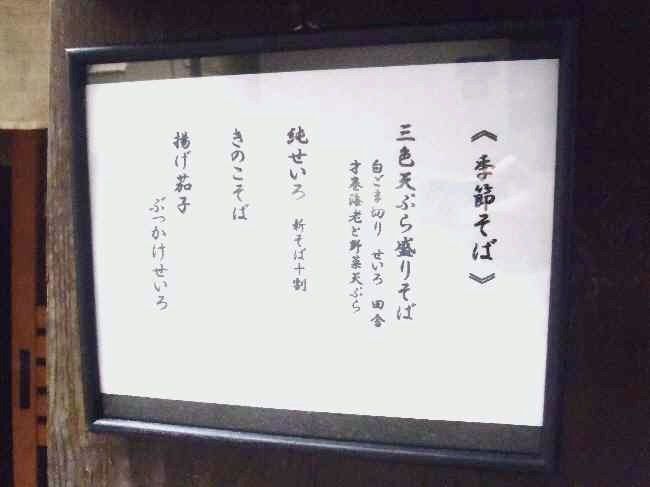 《季節そば》
三色天ぷら盛りそば
白ごま切り せいろ 田舎
才巻海老と野菜天ぷら
純せいろ 新そば十割
きのこそば
揚げ茄子
ぶっかけせいろ